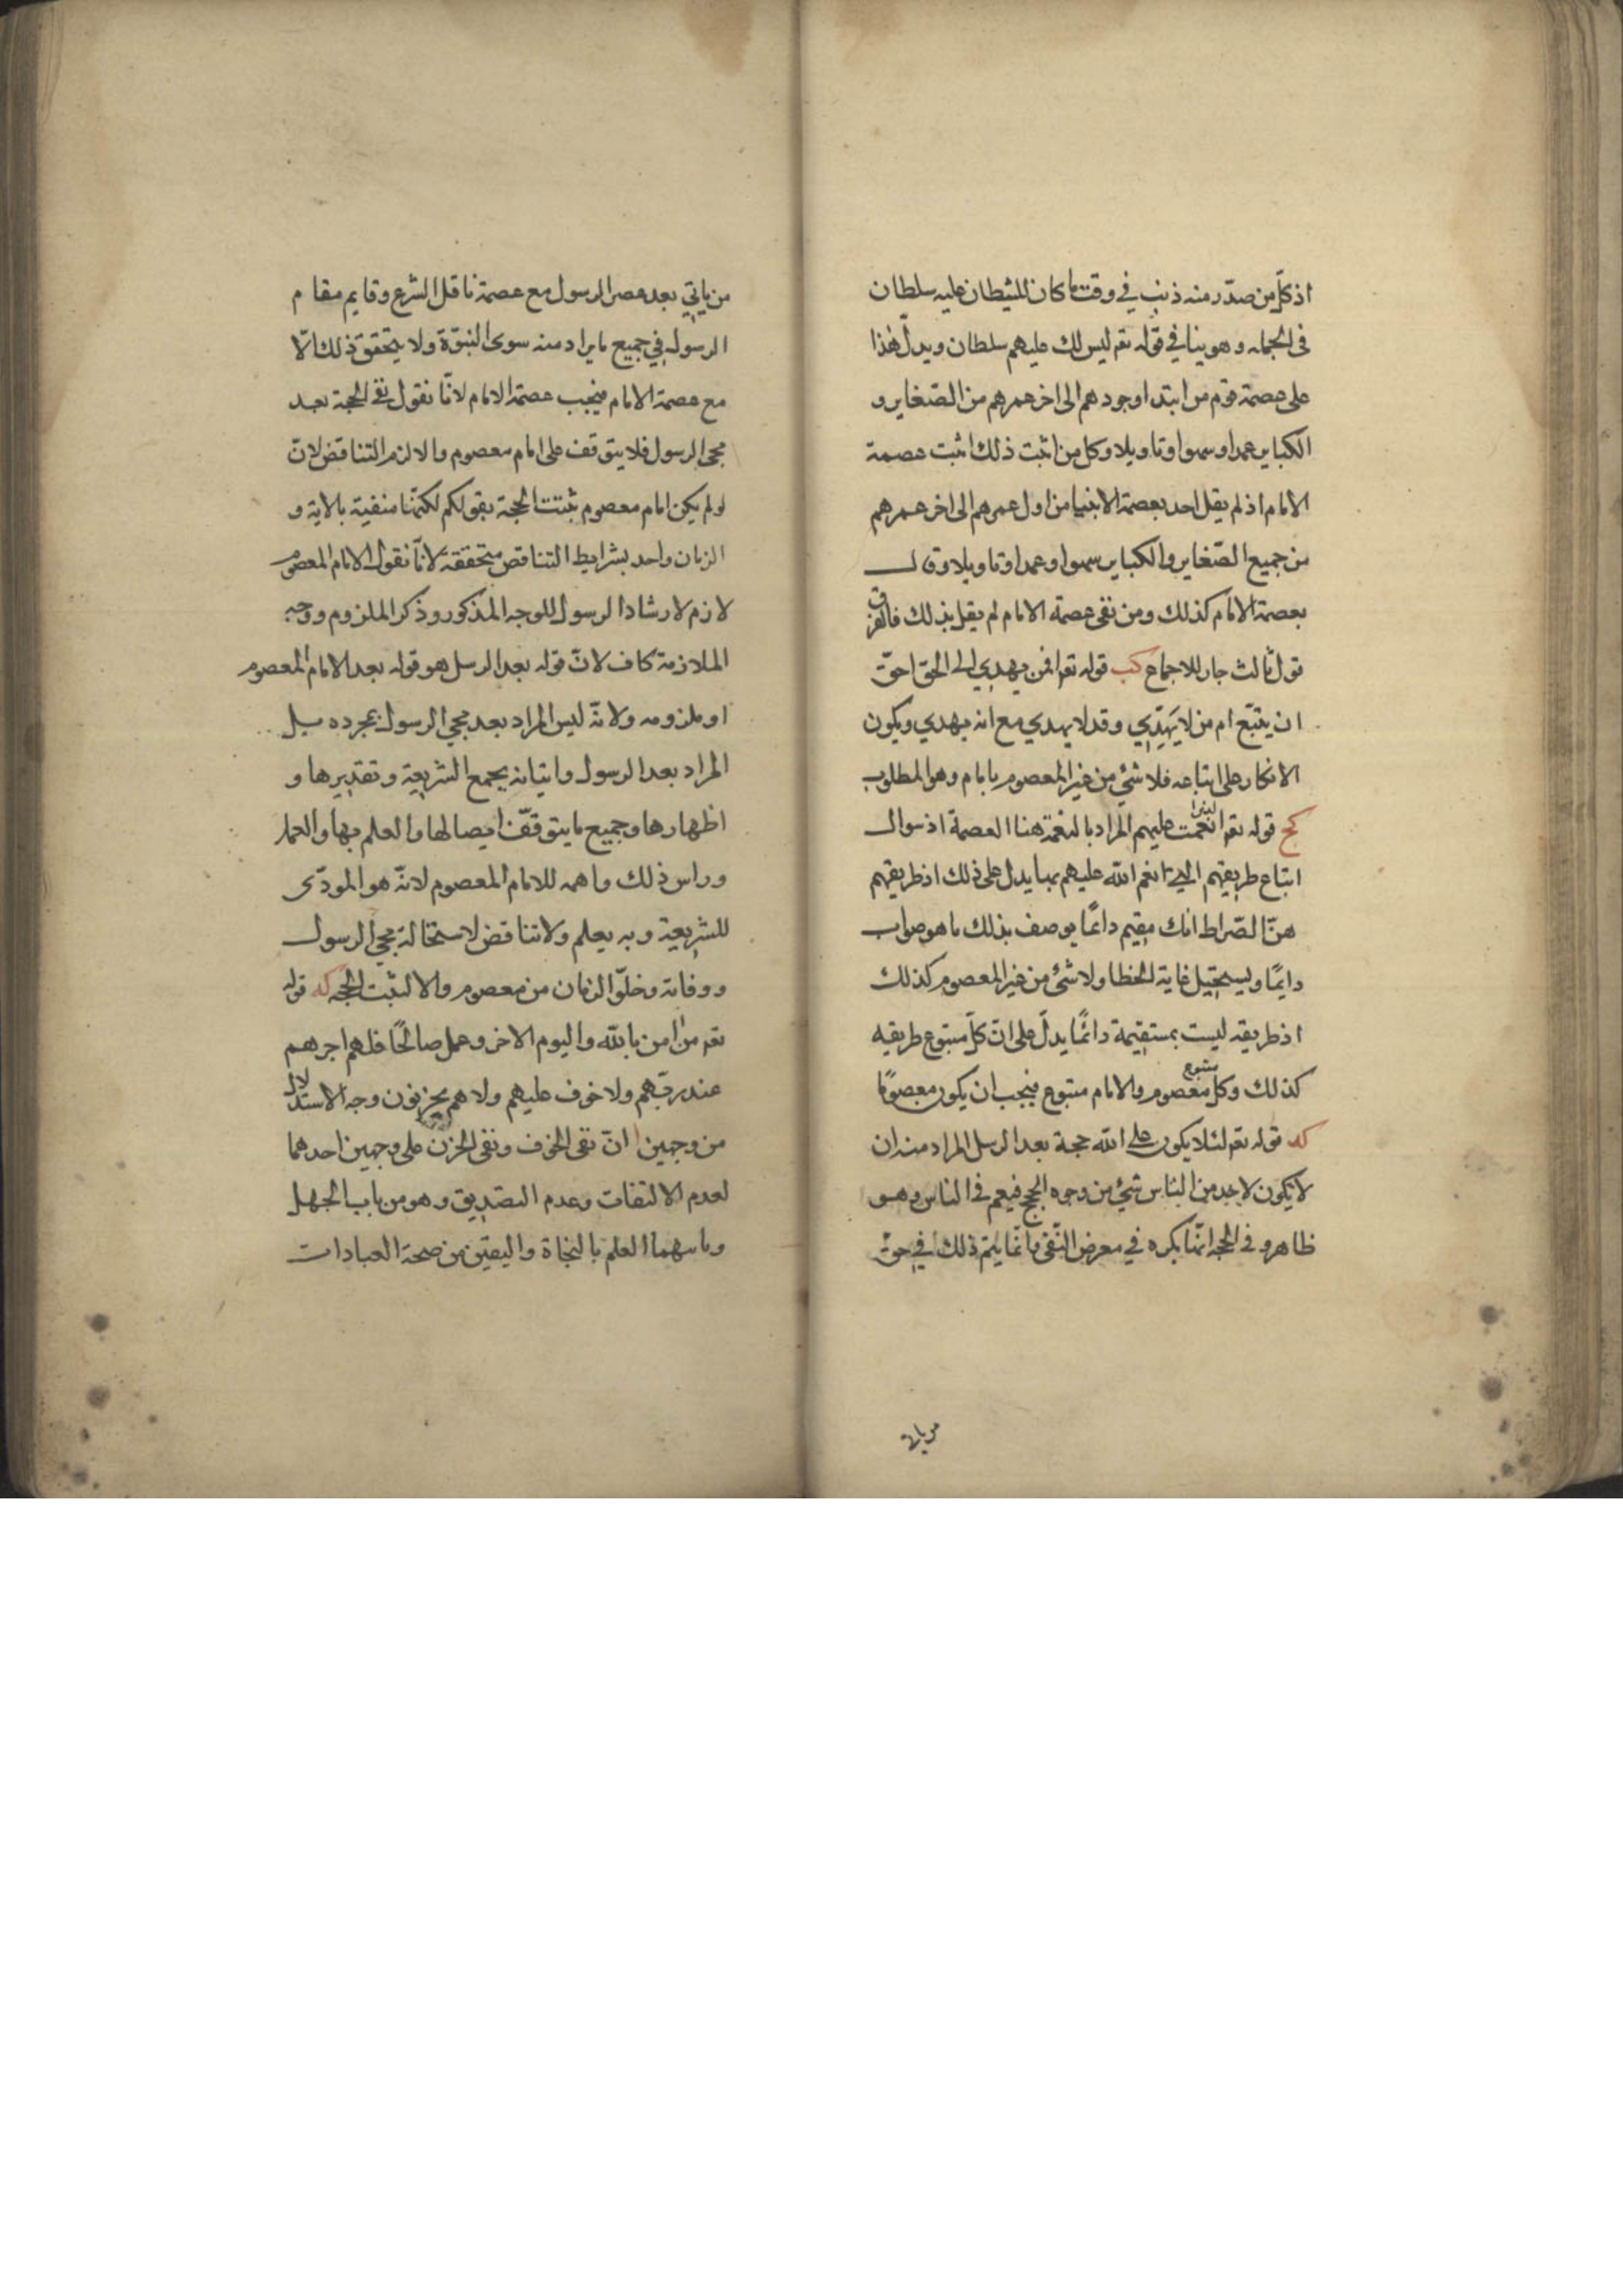 اذ كلّ من صدر منه ذنب في وقت ما كان للشيطان عليه سلطان
فى الجمله و هو ينافي قوله تعم ليس لك عليهم سلطان ويدلّ هذا
على عصمة قوم من ابتدا وجودهم الى اخر عمرهم من الصّغاير و
الكباير عمدا و سهوا و تاويلا وكل من اثبت ذلك اثبت عصمة
الامام اذ لم يقل احد بعصمة الانبيا من اول عمرهم الى اخر عمرهم
من جميع الصّغاير والكباير سهوا و عمدا و تاويلا وقال
بعصمة الامام كذلك ومن نفى عصمة الامام لم يقل بذلك فالفرق
قول ثالث جار للاجماع كب قوله تعم افمن يهدي الى الحق احقّ
ان يتبّع ام من لا يَهِدّي وقد لا يهدي مع انه يهدي ويكون
الانكار على اتباعه فلا شئ من غير المعصوم بامام وهو المطلوب
كج قوله تعم الذين انعمت عليهم المراد بالنعمة هنا العصمة اذ سوال
اتباع طريقهم الى انعم الله عليهم بها يدل على ذلك اذ طريقهم
هنّا لصّراط انك مقيم دائمًا يوصف بذلك ما هو صواب
دايمًا ويستحيل غاية الخطا ولا شئ من غير المعصوم كذلك
اذ طريقه ليست بمستقيمة دائمًا يدلّ على انّ كلّ متبوع طريقه
كذلك وكل متبوع معصوم والامام متبوع فيجب ان يكون معصومًا
كد قوله تعم لئلا يكون على الله حجة بعد الرسل المراد منه ان
لا يكون لاحد من الناس شئ من وجوه الحجج فيعم فى الناس وهو
ظاهر و فى الحجه انّها نكره في معرض النّفى وانّما يتم ذلك في حقّ
من ياتي
من ياتي بعد عصر الرسول مع عصمة ناقل الشرع وقايم مقام
الرسول في جميع ما يراد منه سوى النبوّة ولا يتحقق ذلك الّا
مع عصمة الامام فيجب عصمة الامام لانّا نقول نفى الحجة بعد
مجئ الرسول فلا يتوقف على امام معصوم والا لزم التناقض لانّ
لو لم يكن امام معصوم ثبتت الحجة بقولكم لكنّها منفية بالاية و
الزمان واحد بشرايط التناقض متحققة لانّا نقول الامام المعصوم
لازم لارشاد الرسول للوجه المذكور وذكر الملزوم ووجه
الملازمة كاف لانّ قوله بعد الرسل هو قوله بعد الامام المعصوم
او ملزومه ولانّه ليس المراد بعد مجئ الرسول بمجرده بل
المراد بعد الرسول واتيانه بجميع الشريعة وتقديرها و
اظهارها وجميع ما يتوقّف ايصالها والعلم بها والعمل
وراس ذلك واهمه للامام المعصوم لانّه هو المودّى
للشريعة وبه يعلم ولا تناقض لاستحالة مجئ الرسول
ووفاته وخلوّ الزمان من معصوم والا لثبت الحجه كه قوله
تعم من امن بالله واليوم الاخر وعمل صالحًا فلهم اجرهم
عند ربّهم ولا خوف عليهم ولا هم يحزنون وجه الاستدلال
من وجهين ا انّ نفى الخوف ونفى الحزن على وجهين احدهما
لعدم الالتفات وعدم التصديق وهو من باب الجهل
وثانيهما العلم بالنجاة واليقين من صحة العبادات